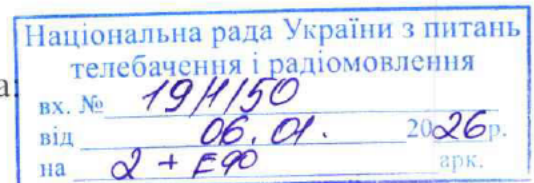 Національна рада України з питань
телебачення і радіомовлення
вх. № 19/1/50
від 06.01. 2026р.
на 2 + арк.